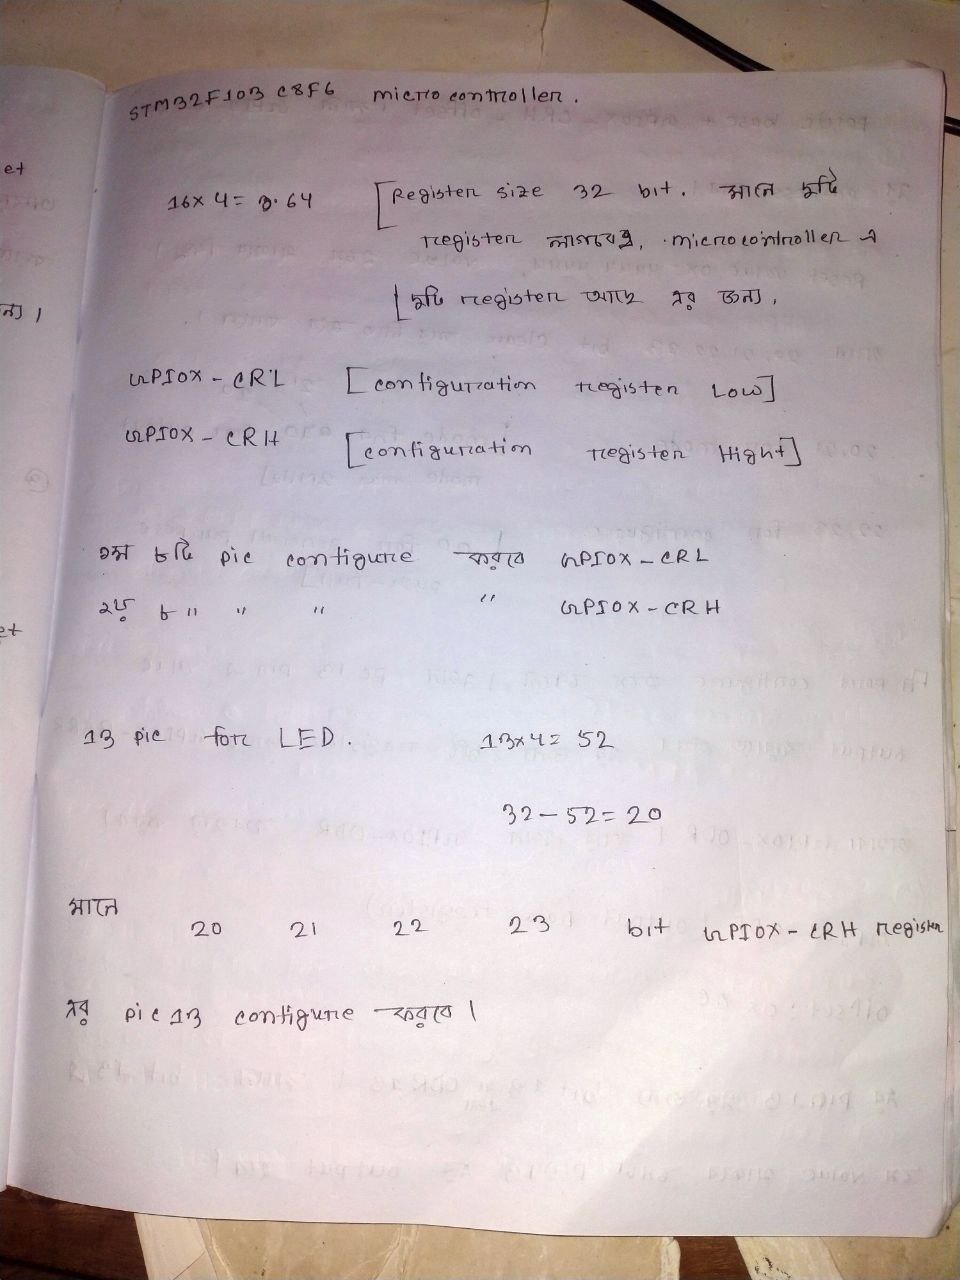 STM32F103 C8F6 microcontroller.
16x4 = 64 [Register size 32 bit. মানে দুটি
register লাগবে, microcontroller এ
দুটি register আছে এর জন্য,
GPIOX - CRL [configuration register Low]
GPIOX - CRH [configuration register Hight]
১ম ৮টি pic configure করবে GPIOX - CRL
২য় ৮ " " " " GPIOX - CRH
13 pic for LED. 13x4= 52
32 - 52 = 20
মানে
20 21 22 23 bit GPIOX - CRH register
এর pic 13 configure করবে।
et
ন্য।
et